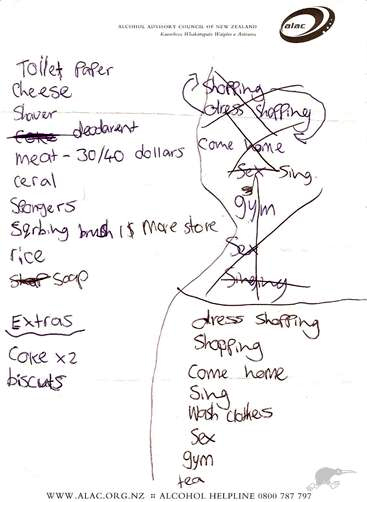 ALCOHOL ADVISORY COUNCIL OF NEW ZEALAND
Kaunihera Whakatupato Waipiro o Aotearoa
alac
Toilet paper
Cheese
Shaver
Coke deodarent
meat - 30/40 dollars
ceral
Spongers
Scrbing brush 1$ More store
rice
Soap
Extras
Coke x2
biscuts
Shopping
dress shopping
Come home
Sex Sing
gym
Sex
Singing
dress shopping
Shopping
Come home
Sing
Wash clothes
Sex
gym
tea
WWW.ALAC.ORG.NZ ¤ ALCOHOL HELPLINE 0800 787 797